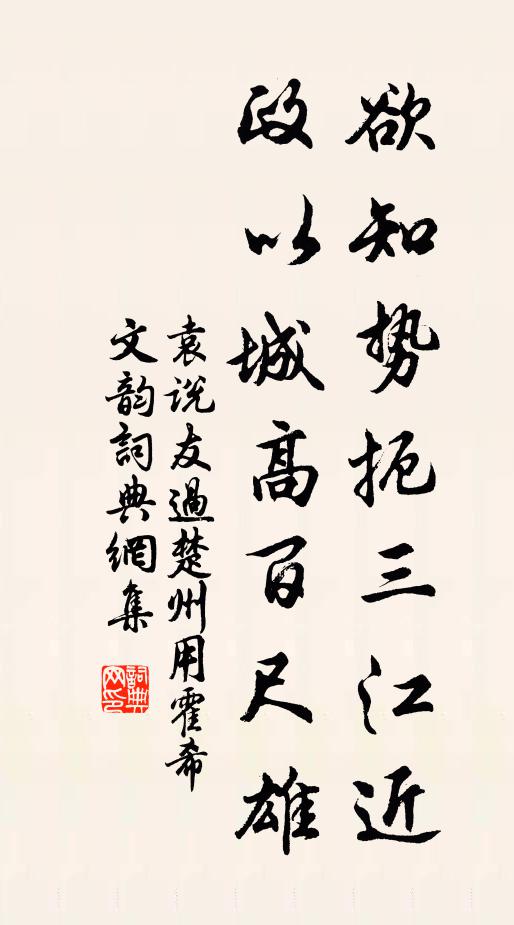 欲知势扼三江近
政以城高百尺雄
袁说友過楚州用霍希
文韵詞典網集
詞典
网印